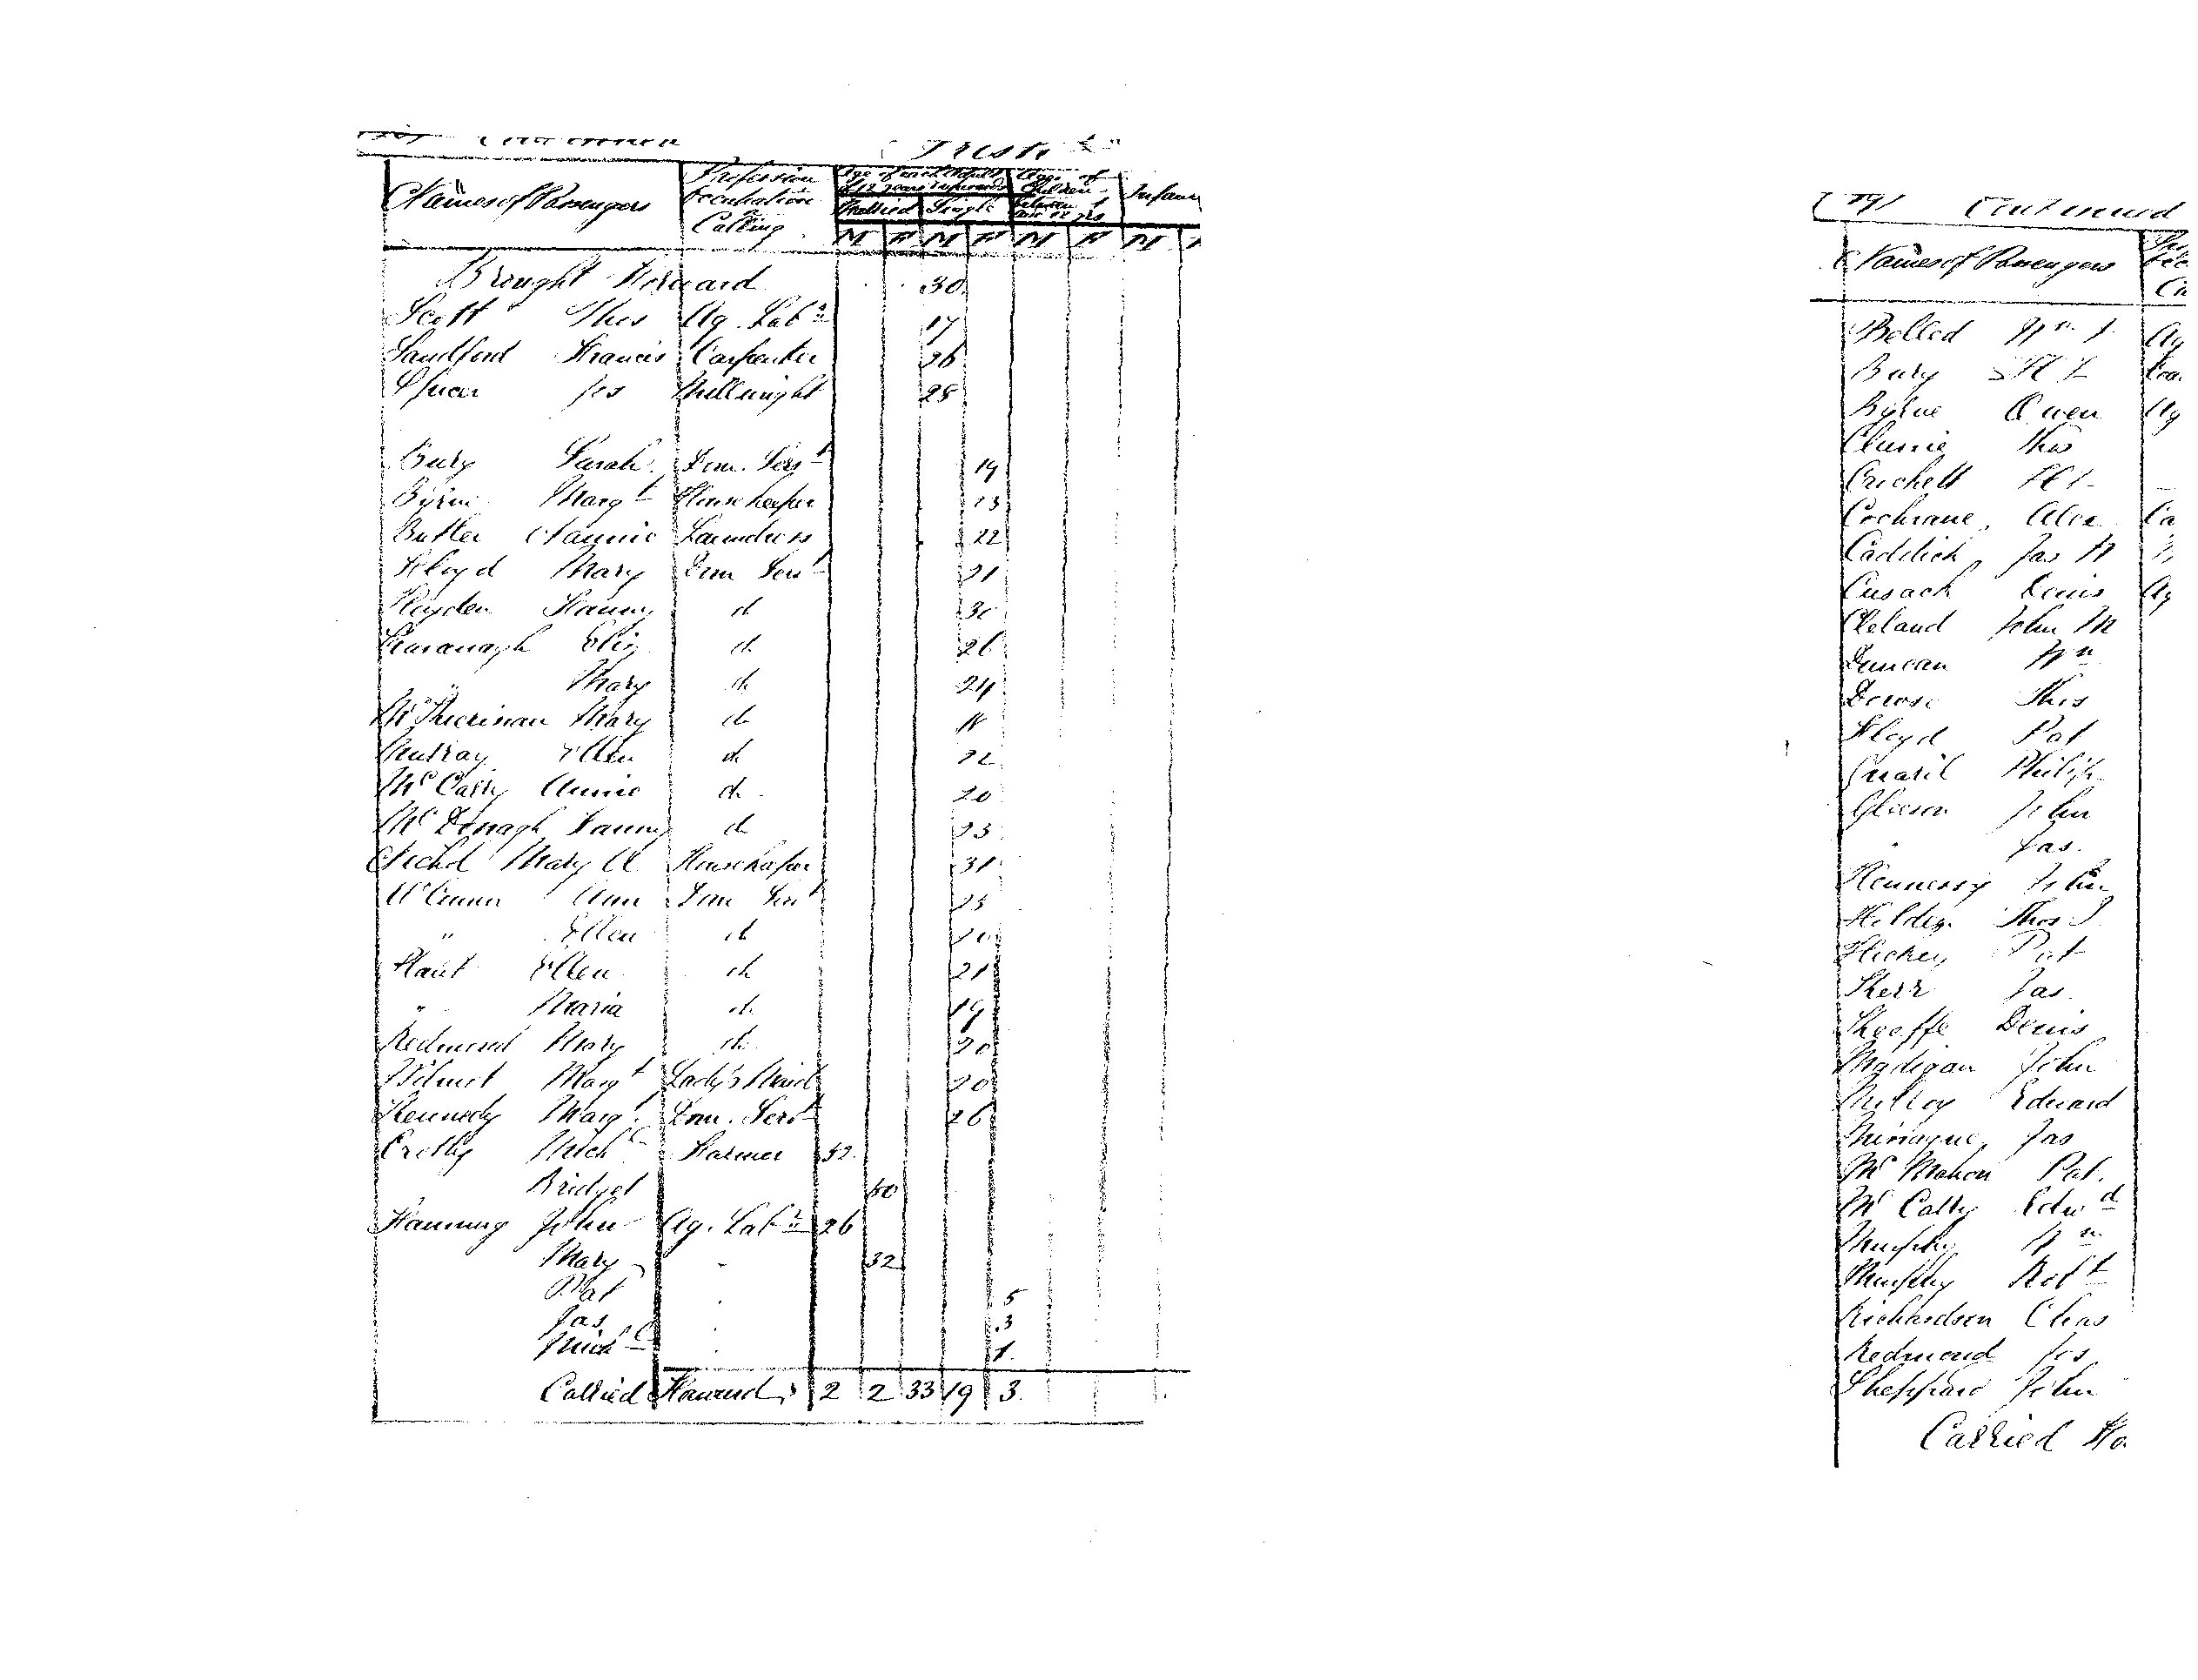 Continued Irish
Names of Passengers Profession Occupation or Calling Age of each Adult of 12 years & upwards Ages of Children Infan
Married Single
M F M F M F M
Brought Forward 30
Scott Thos Ag. Labr 17
Sandford Francis Carpenter 26
Spicer Jos Millwright 25
Bury Sarah Dom. Servt 19
Byrne Margt Housekeeper 23
Butler Nannie Laundress 22
Floyd Mary Dom Servt 21
Hayden Fanny do 30
Kavanagh Eliz do 26
" Mary do 24
Mary do
Murray Ellen do 22
McCarty Annie do 20
McDonagh Fanny do 23
Mary A Housekeeper 31
Ann Dom Servt 25
" Ellen do 20
Ellen do 21
" Maria do 19
Redmond Mary do 20
Margt Lady's Maid 20
Kennedy Margt Dom. Servt 26
Crotty Michl Farmer 52
Bridget 50
Fanning John Ag. Labr 26
Mary 32
Pat 5
Jas 3
Michl 1
Carried Forward 2 2 33 19 3
Continued
Names of Passengers
Wm J
Bury
Byrne Owen Ag
Clunie Thos
Crichett
Cochrane, Alex Ca
Caddick, Jas
Cusack Denis Ag
Cleland John M
Duncan Wm
Thos
Floyd Pat
Philip
Gleeson John
" Jas.
Hennessy John
Thos J
Hickey Pat
Kerr Jas
Keeffe Denis
Madigan John
Milloy Edward
Minogue, Jas
McMahon Pat.
McCarty Edwd
Murphy Wm
Murphy Robt
Richardson Chas
Redmond Jos
Sheppard John
Carried Fo